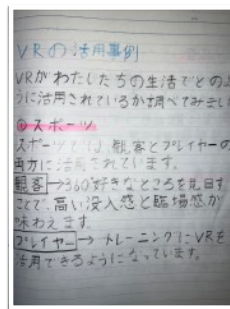 VRの活用事例
VRがわたしたちの生活でどのよ
うに活用されているか調べてみまし
①スポーツ
スポーツでは、観客とプレイヤーの
両方に活用されています。
観客→360好きなところを見回す
ことで、高い没入感と臨場感が
味わえます。
プレイヤー→トレーニングにVRを
活用できるようになっています。